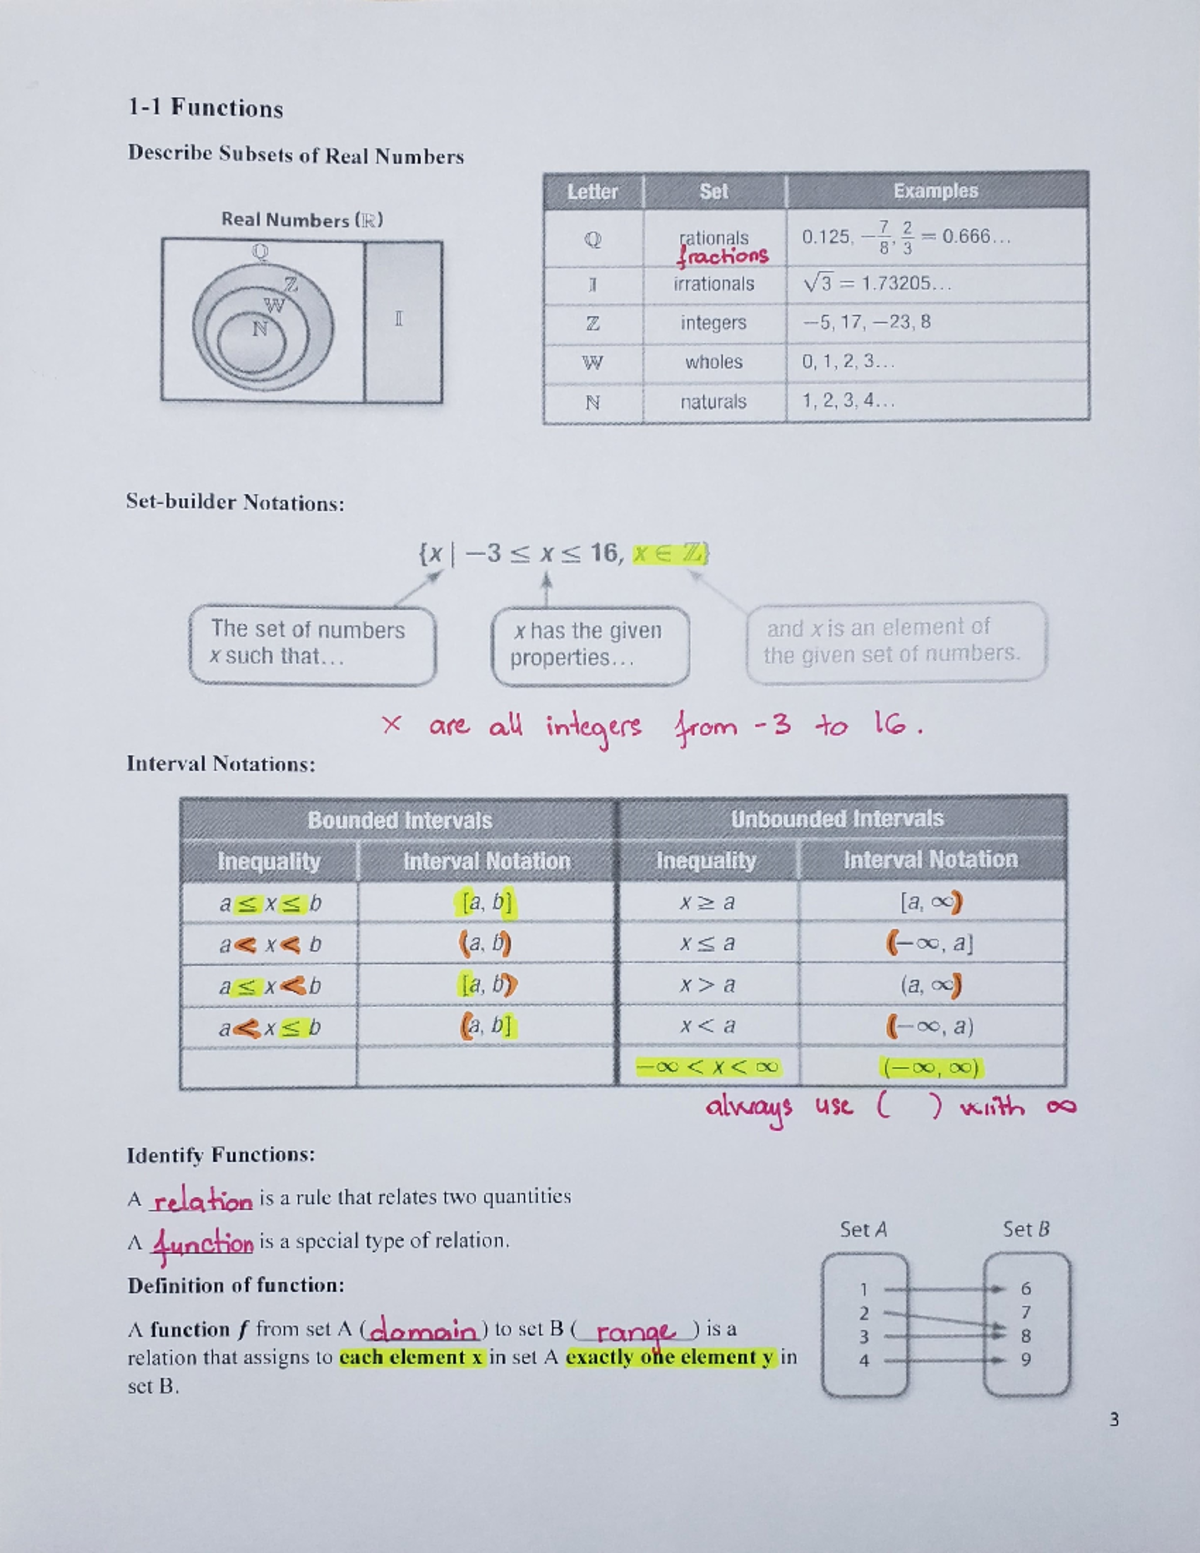 1-1 Functions
Describe Subsets of Real Numbers
Real Numbers (ℝ)
ℚ
ℤ
𝕎
ℕ
𝕀
Letter Set Examples
ℚ rationals 0.125, −7/8, 2/3 = 0.666…
fractions
𝕀 irrationals √3 = 1.73205…
ℤ integers −5, 17, −23, 8
𝕎 wholes 0, 1, 2, 3…
ℕ naturals 1, 2, 3, 4…
Set-builder Notations:
{x | −3 ≤ x ≤ 16, x ∈ ℤ}
The set of numbers
x such that…
x has the given
properties…
and x is an element of
the given set of numbers.
x are all integers from -3 to 16.
Interval Notations:
Bounded Intervals Unbounded Intervals
Inequality Interval Notation Inequality Interval Notation
a ≤ x ≤ b [a, b] x ≥ a [a, ∞)
a < x < b (a, b) x ≤ a (−∞, a]
a ≤ x < b [a, b) x > a (a, ∞)
a < x ≤ b (a, b] x < a (−∞, a)
−∞ < x < ∞ (−∞, ∞)
always use ( ) with ∞
Identify Functions:
A relation is a rule that relates two quantities
A function is a special type of relation.
Definition of function:
A function f from set A (domain) to set B ( range ) is a
relation that assigns to each element x in set A exactly one element y in
set B.
Set A Set B
1 6
2 7
3 8
4 9
3